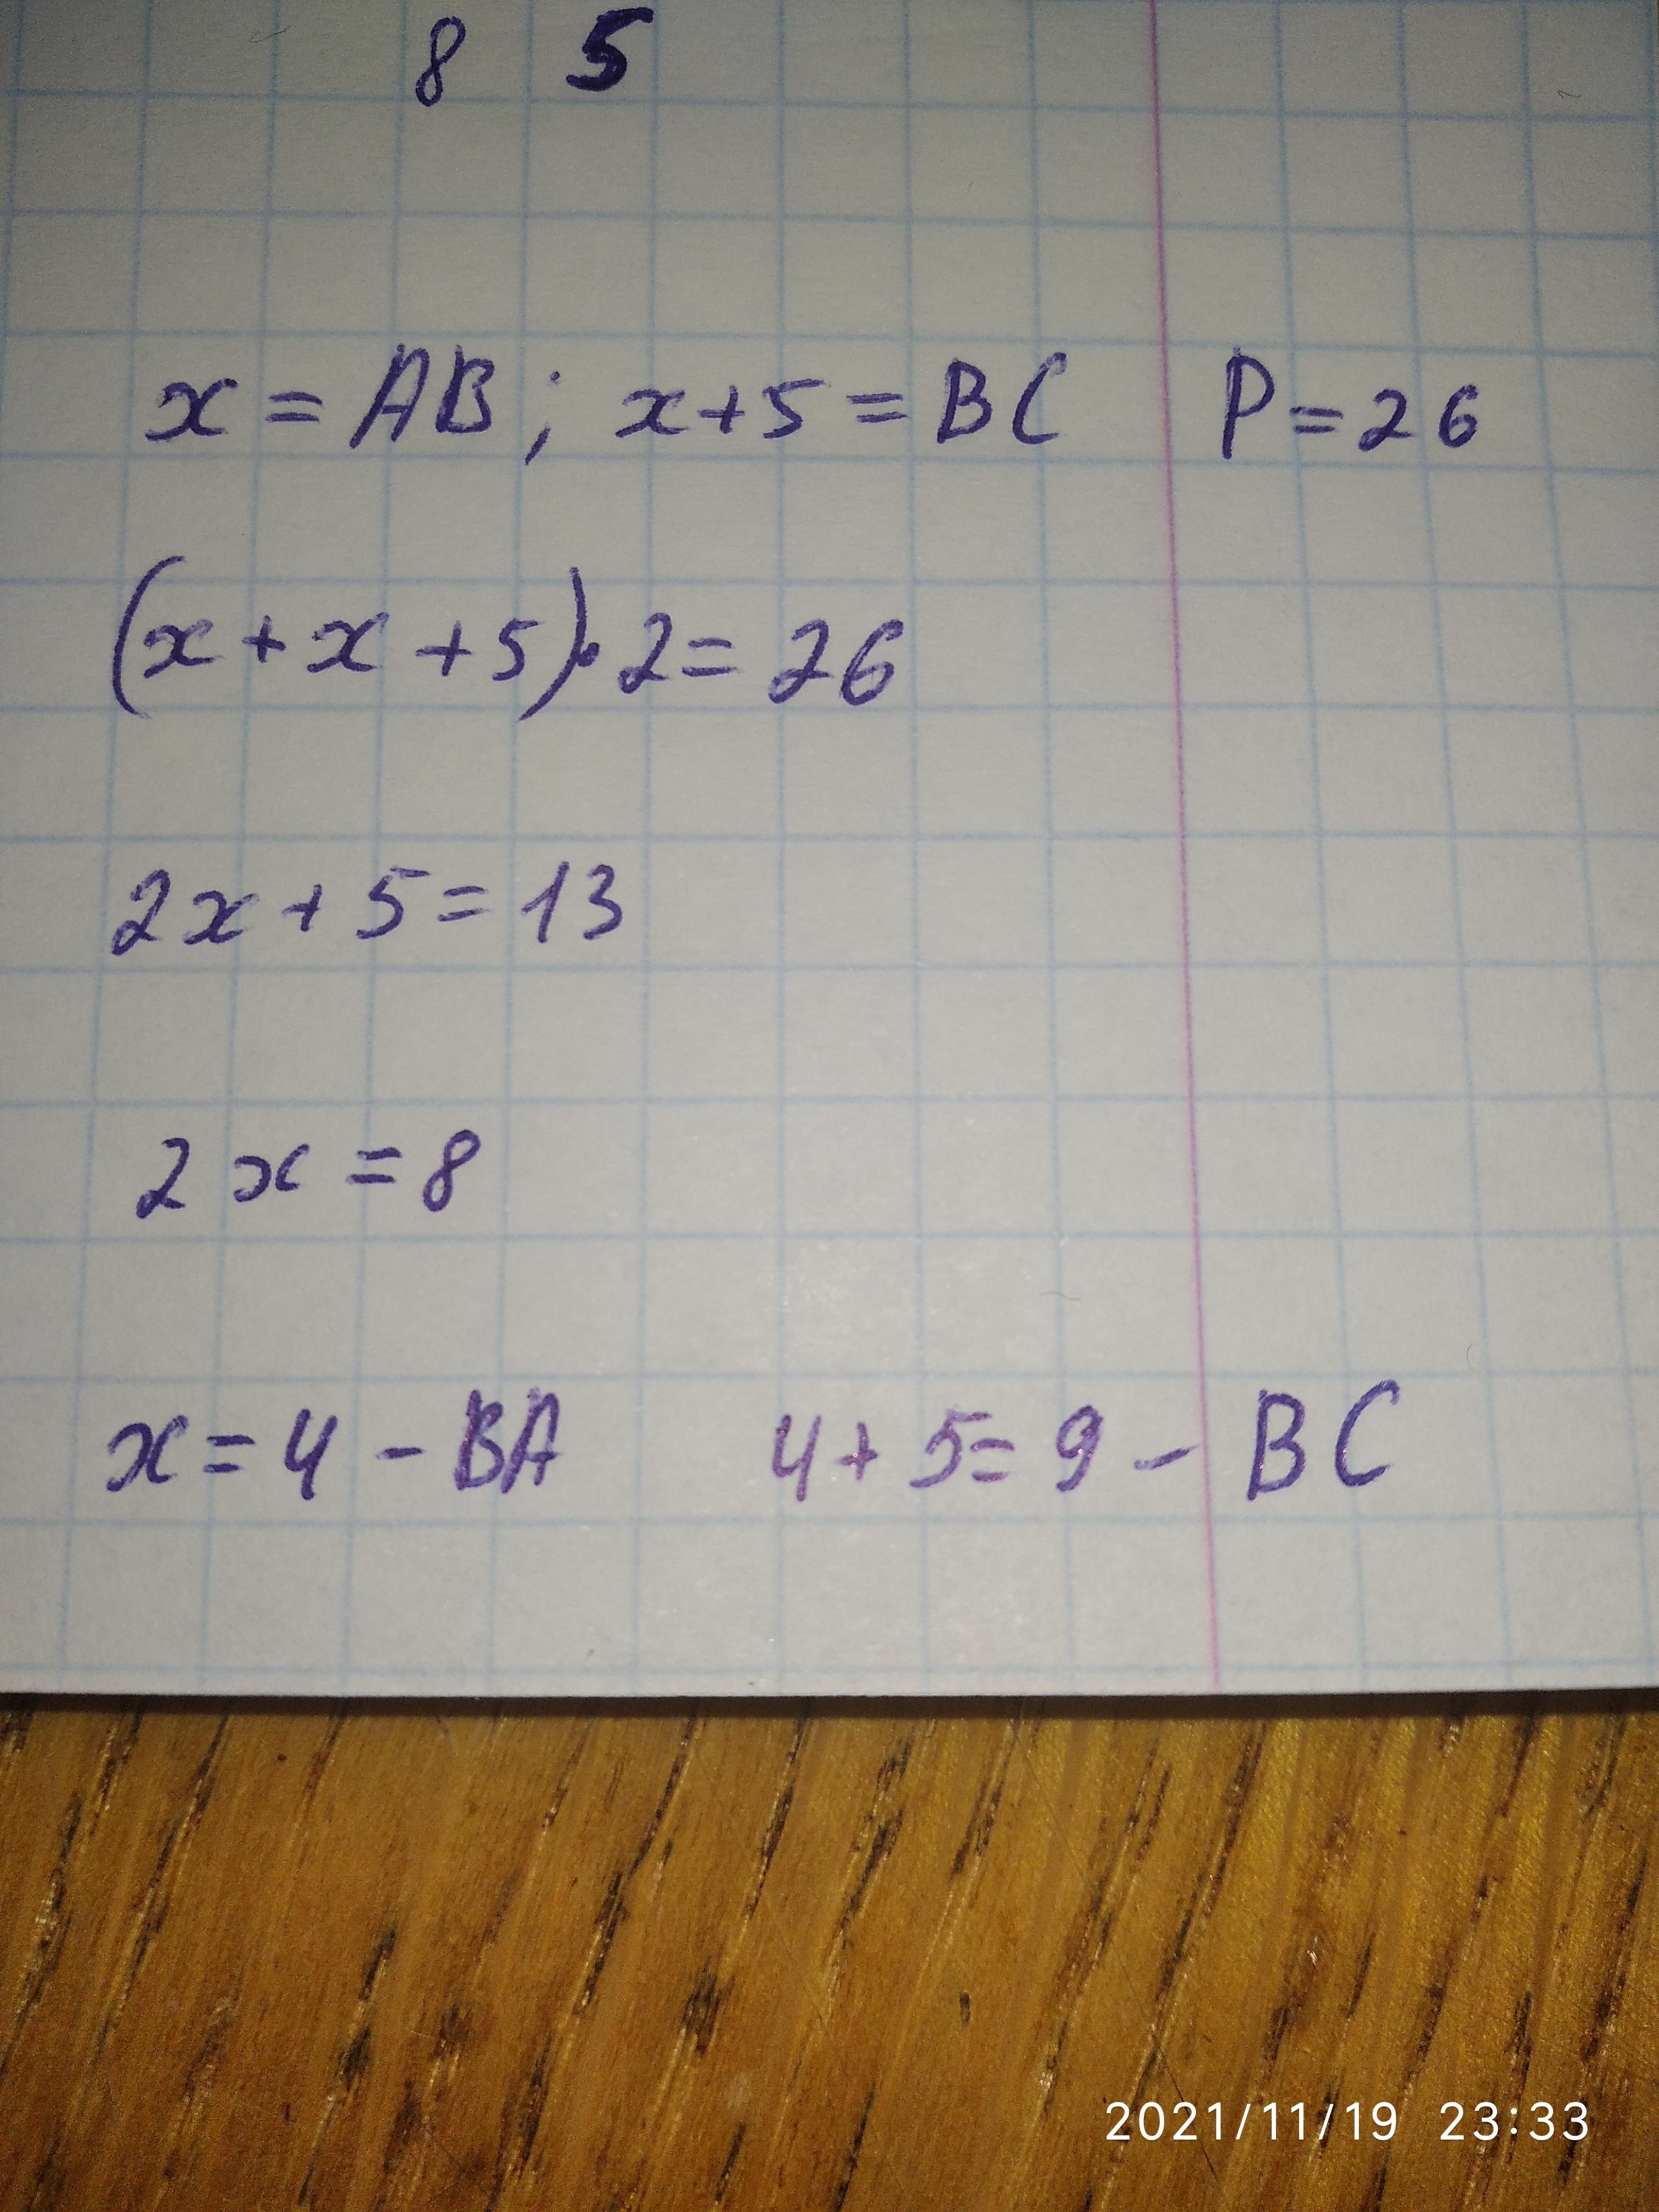 8 5
x = AB; x+5 = BC P = 26
(x + x + 5)·2 = 26
2x + 5 = 13
2x = 8
x = 4 - BA 4 + 5 = 9 - BC
2021/11/19 23:33